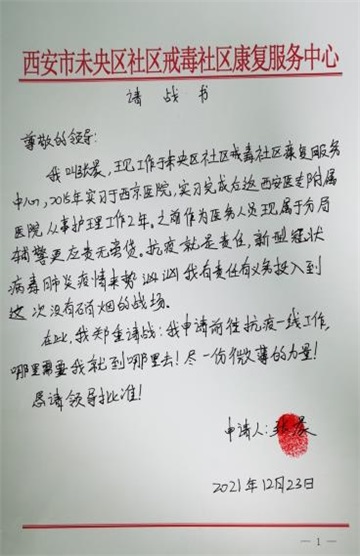 西安市未央区社区戒毒社区康复服务中心
请战书
尊敬的领导:
我叫张晨,现工作于未央区社区戒毒社区康复服务
中心,2015年实习于西京医院,实习完成后返西安医专附属
医院,从事护理工作2年。之前作为医务人员现属于分局
辅警更应责无旁贷。抗疫就是责任,新型冠状
病毒肺炎疫情来势汹汹我有责任有义务投入到
这次没有硝烟的战场。
在此,我郑重请战:我申请前往抗疫一线工作,
哪里需要我就到哪里去!尽一份微薄的力量!
恳请领导批准!
申请人:张晨
2021年12月23日
— 1 —